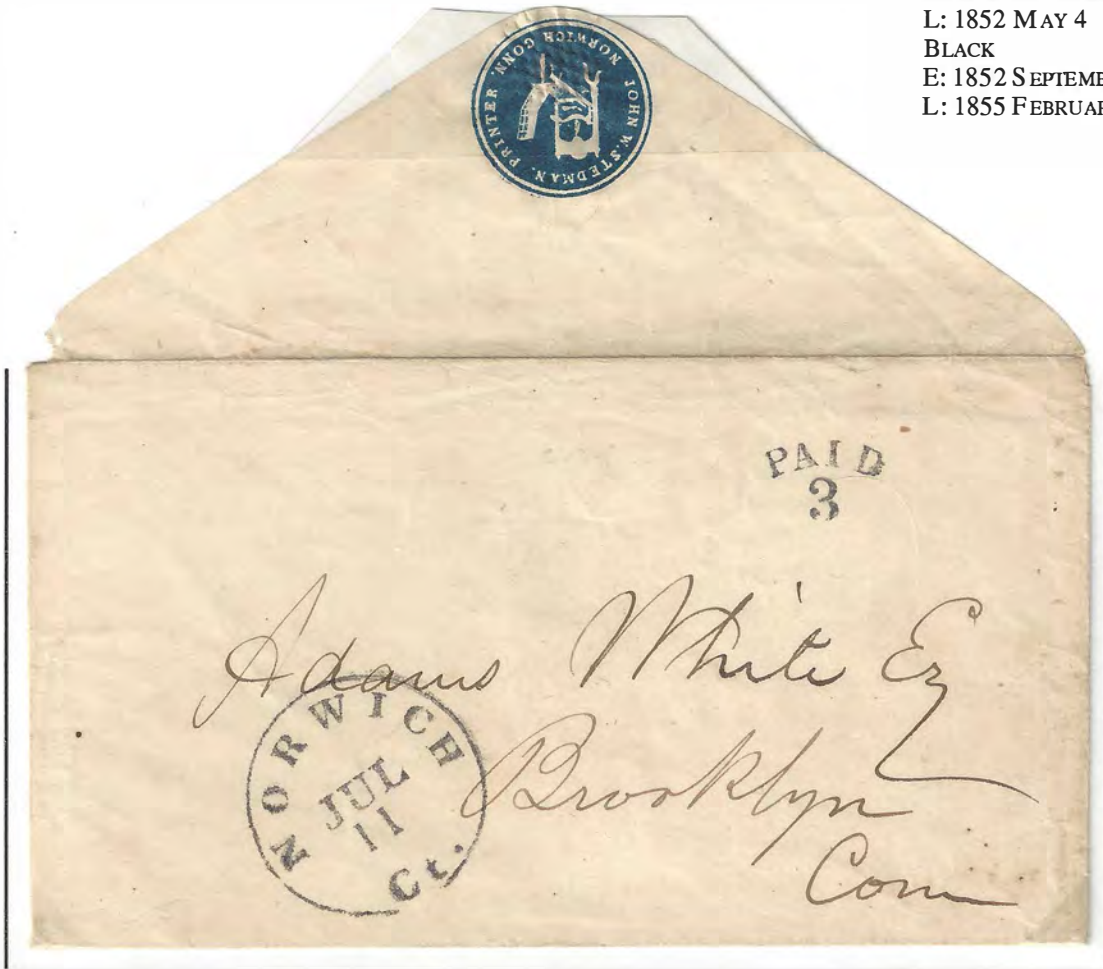 L: 1852 MAY 4
BLACK
E: 1852 SEPTEME
L: 1855 FEBRUAR
JOHN W. STEDMAN, PRINTER. NORWICH CONN.
PAID
3
Adams White Es
Brooklyn
Conn
NORWICH
JUL
11
Ct.